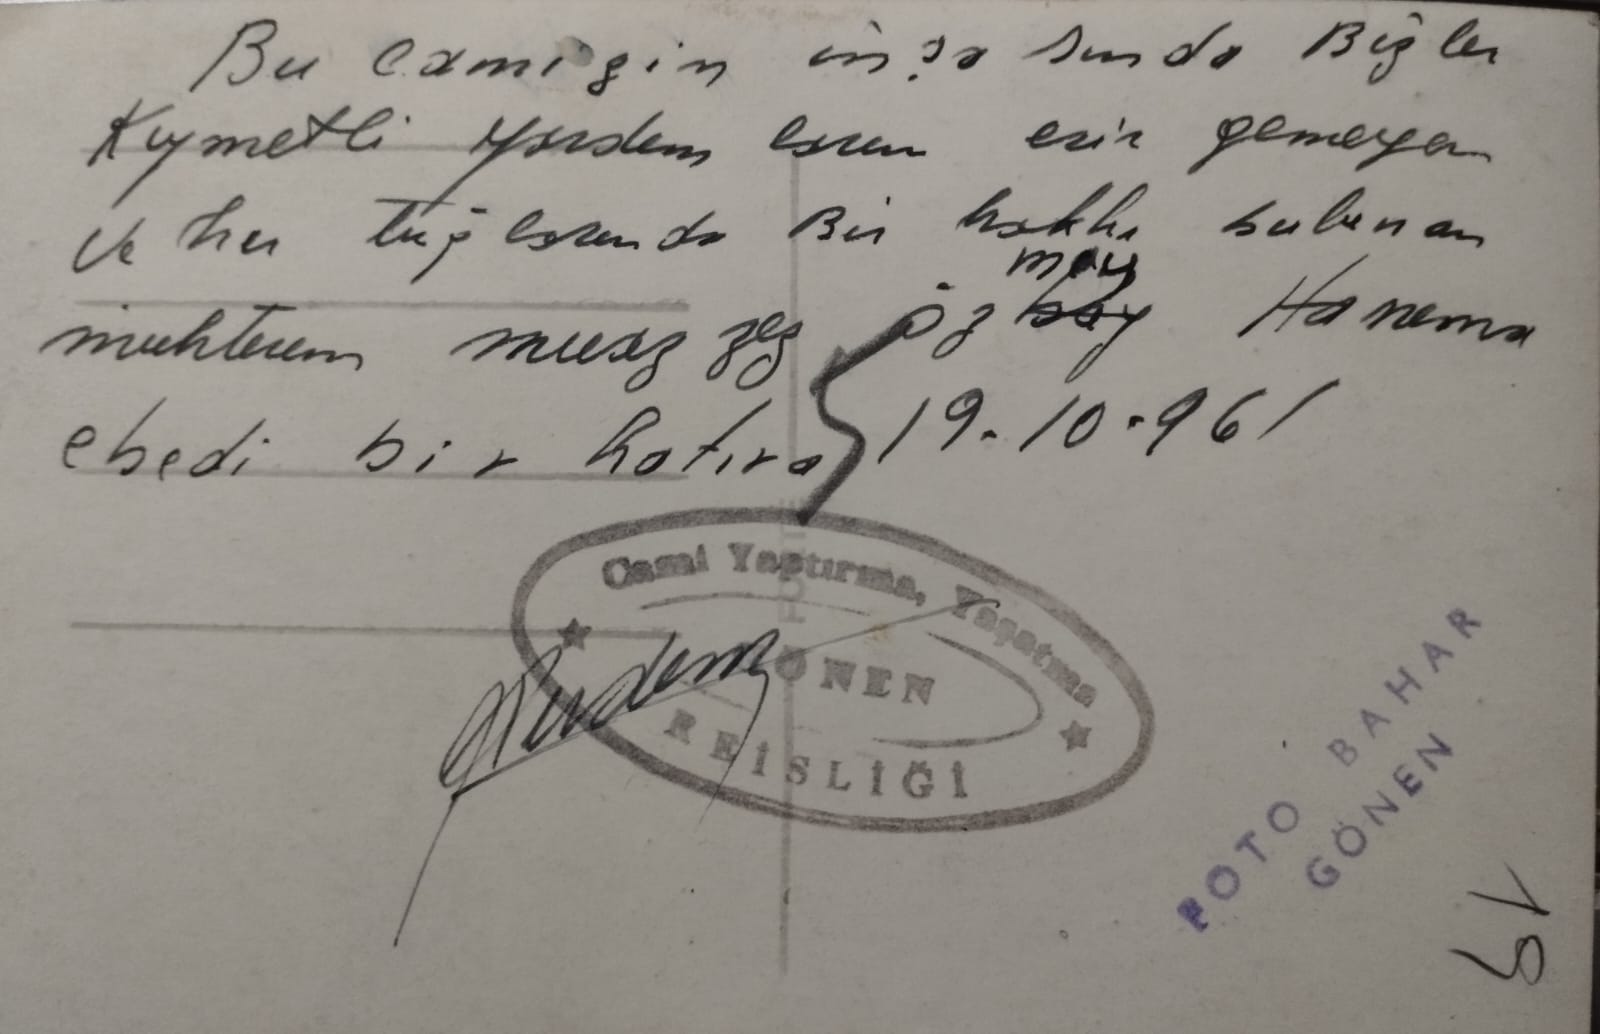 Bu camiğin inşa sında Bizler
Kıymetli yardım ların esir gemeyen
ve her tuğ lasında Bir hakkı bulunan
may
muhterem muaz zez öz bay Hanıma
ebedi bir hatıra 19.10.961
Cami Yaptırma, Yaşatma
GÖNEN
REİSLİĞİ
FOTO BAHAR
GÖNEN
19